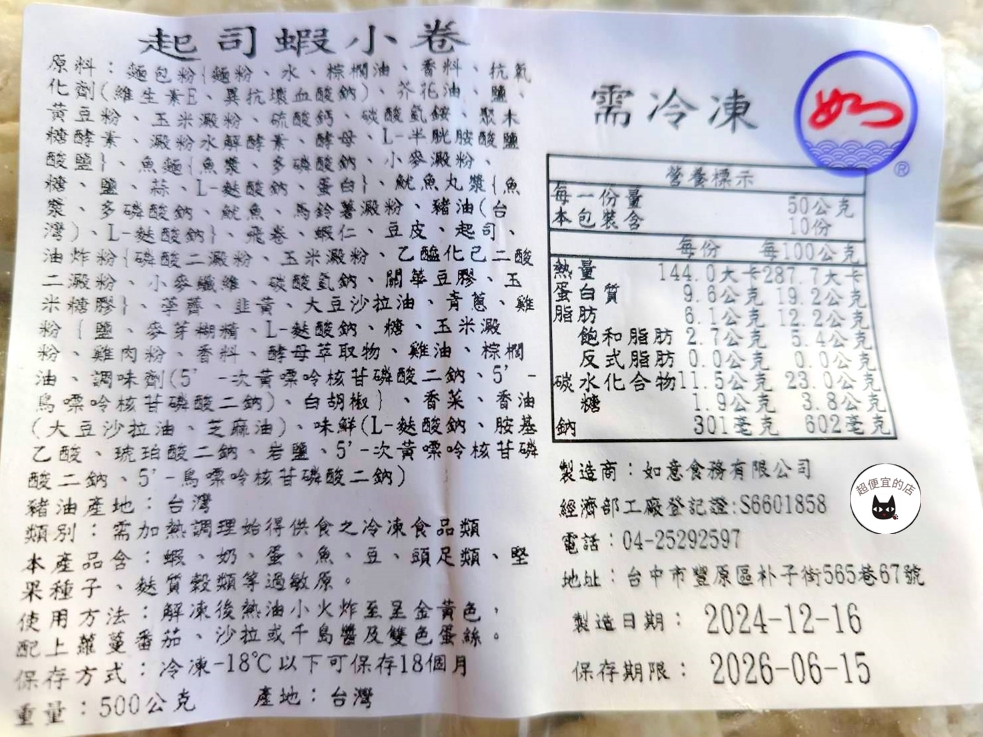 起司蝦小卷
原料：麵包粉{麵粉、水、棕櫚油、香料、抗氧
化劑(維生素E、異抗壞血酸鈉)、芥花油、鹽、
黃豆粉、玉米澱粉、硫酸鈣、碳酸氫銨、聚木
糖酵素、澱粉水解酵素、酵母、L-半胱胺酸鹽
酸鹽}、魚麵{魚漿、多磷酸鈉、小麥澱粉、
糖、鹽、蒜、L-麩酸鈉、蛋白}、魷魚丸漿{魚
漿、多磷酸鈉、魷魚、馬鈴薯澱粉、豬油(台
灣)、L-麩酸鈉}、飛卷、蝦仁、豆皮、起司、
油炸粉{磷酸二澱粉、玉米澱粉、乙醯化己二酸
二澱粉、小麥纖維、碳酸氫鈉、關華豆膠、玉
米糖膠}、荸薺、韭黃、大豆沙拉油、青蔥、雞
粉{鹽、麥芽糊精、L-麩酸鈉、糖、玉米澱
粉、雞肉粉、香料、酵母萃取物、雞油、棕櫚
油、調味劑(5'-次黃嘌呤核苷磷酸二鈉、5'-
鳥嘌呤核苷磷酸二鈉)、白胡椒}、香菜、香油
(大豆沙拉油、芝麻油)、味鮮(L-麩酸鈉、胺基
乙酸、琥珀酸二鈉、岩鹽、5'-次黃嘌呤核苷磷
酸二鈉、5'-鳥嘌呤核苷磷酸二鈉)
豬油產地：台灣
類別：需加熱調理始得供食之冷凍食品類
本產品含：蝦、奶、蛋、魚、豆、頭足類、堅
果種子、麩質穀類等過敏原。
使用方法：解凍後熱油小火炸至呈金黃色，
配上蘿蔓番茄、沙拉或千島醬及雙色蛋絲。
保存方式：冷凍-18℃以下可保存18個月
重量：500公克 產地：台灣
需冷凍
®
營養標示
每一份量 50公克
本包裝含 10份
每份 每100公克
熱量 144.0大卡 287.7大卡
蛋白質 9.6公克 19.2公克
脂肪 6.1公克 12.2公克
飽和脂肪 2.7公克 5.4公克
反式脂肪 0.0公克 0.0公克
碳水化合物 11.5公克 23.0公克
糖 1.9公克 3.8公克
鈉 301毫克 602毫克
製造商：如意食務有限公司
經濟部工廠登記證:S6601858
電話：04-25292597
地址：台中市豐原區朴子街565巷67號
製造日期： 2024-12-16
保存期限： 2026-06-15
超便宜的店